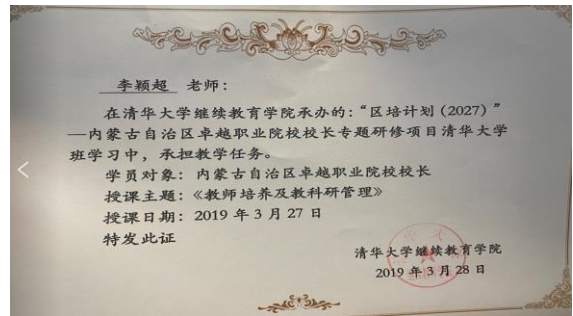 李颖超 老师：
在清华大学继续教育学院承办的：“区培计划(2027)”
—内蒙古自治区卓越职业院校校长专题研修项目清华大学
班学习中，承担教学任务。
学员对象：内蒙古自治区卓越职业院校校长
授课主题：《教师培养及教科研管理》
授课日期：2019 年 3 月 27 日
特发此证
清华大学继续教育学院
2019 年 3 月 28 日